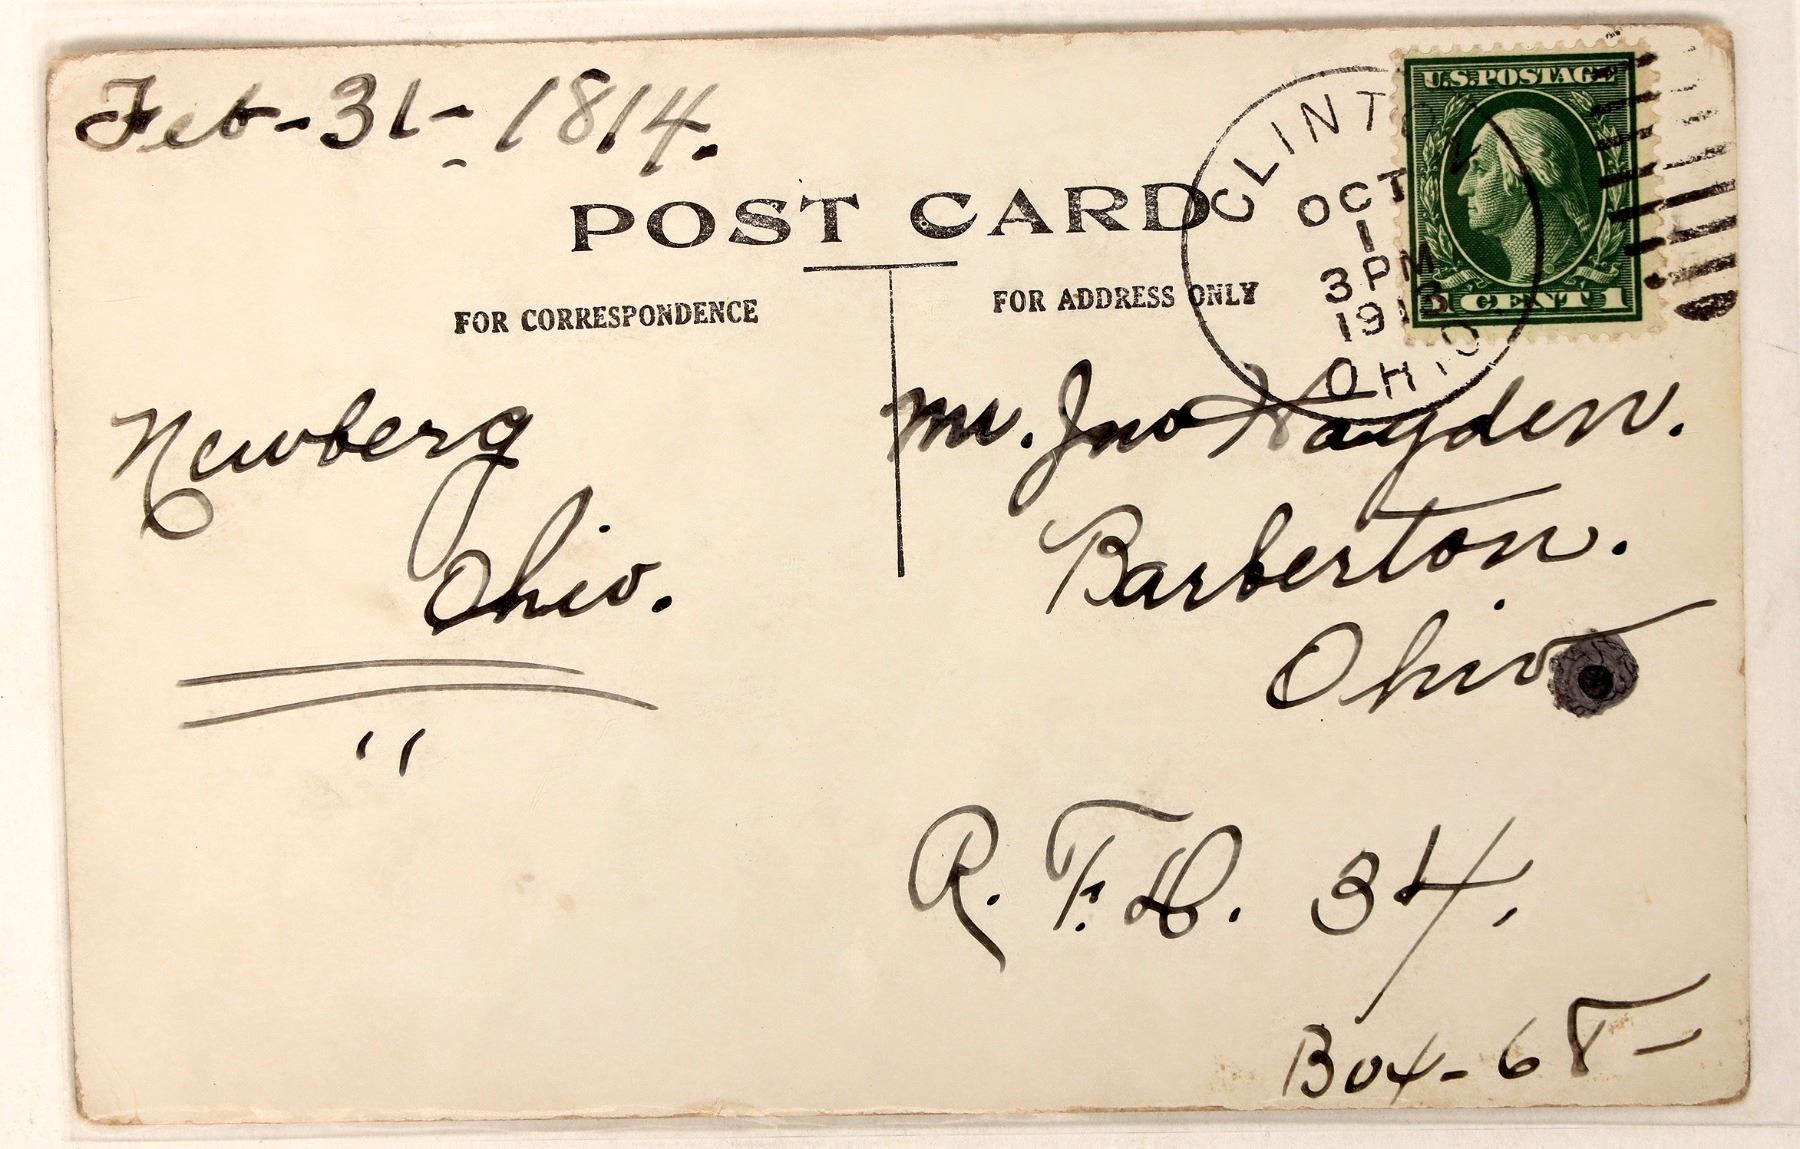 Feb-31-1814.
U.S. POSTAGE
CENT 1
CLINTON
OCT
1
3 PM
1913
OHIO
POST CARD
FOR CORRESPONDENCE
FOR ADDRESS ONLY
Newberg
Ohio.
Mr. Jno Hayden.
Barberton.
Ohio
R. F. D. 34.
Box-68-